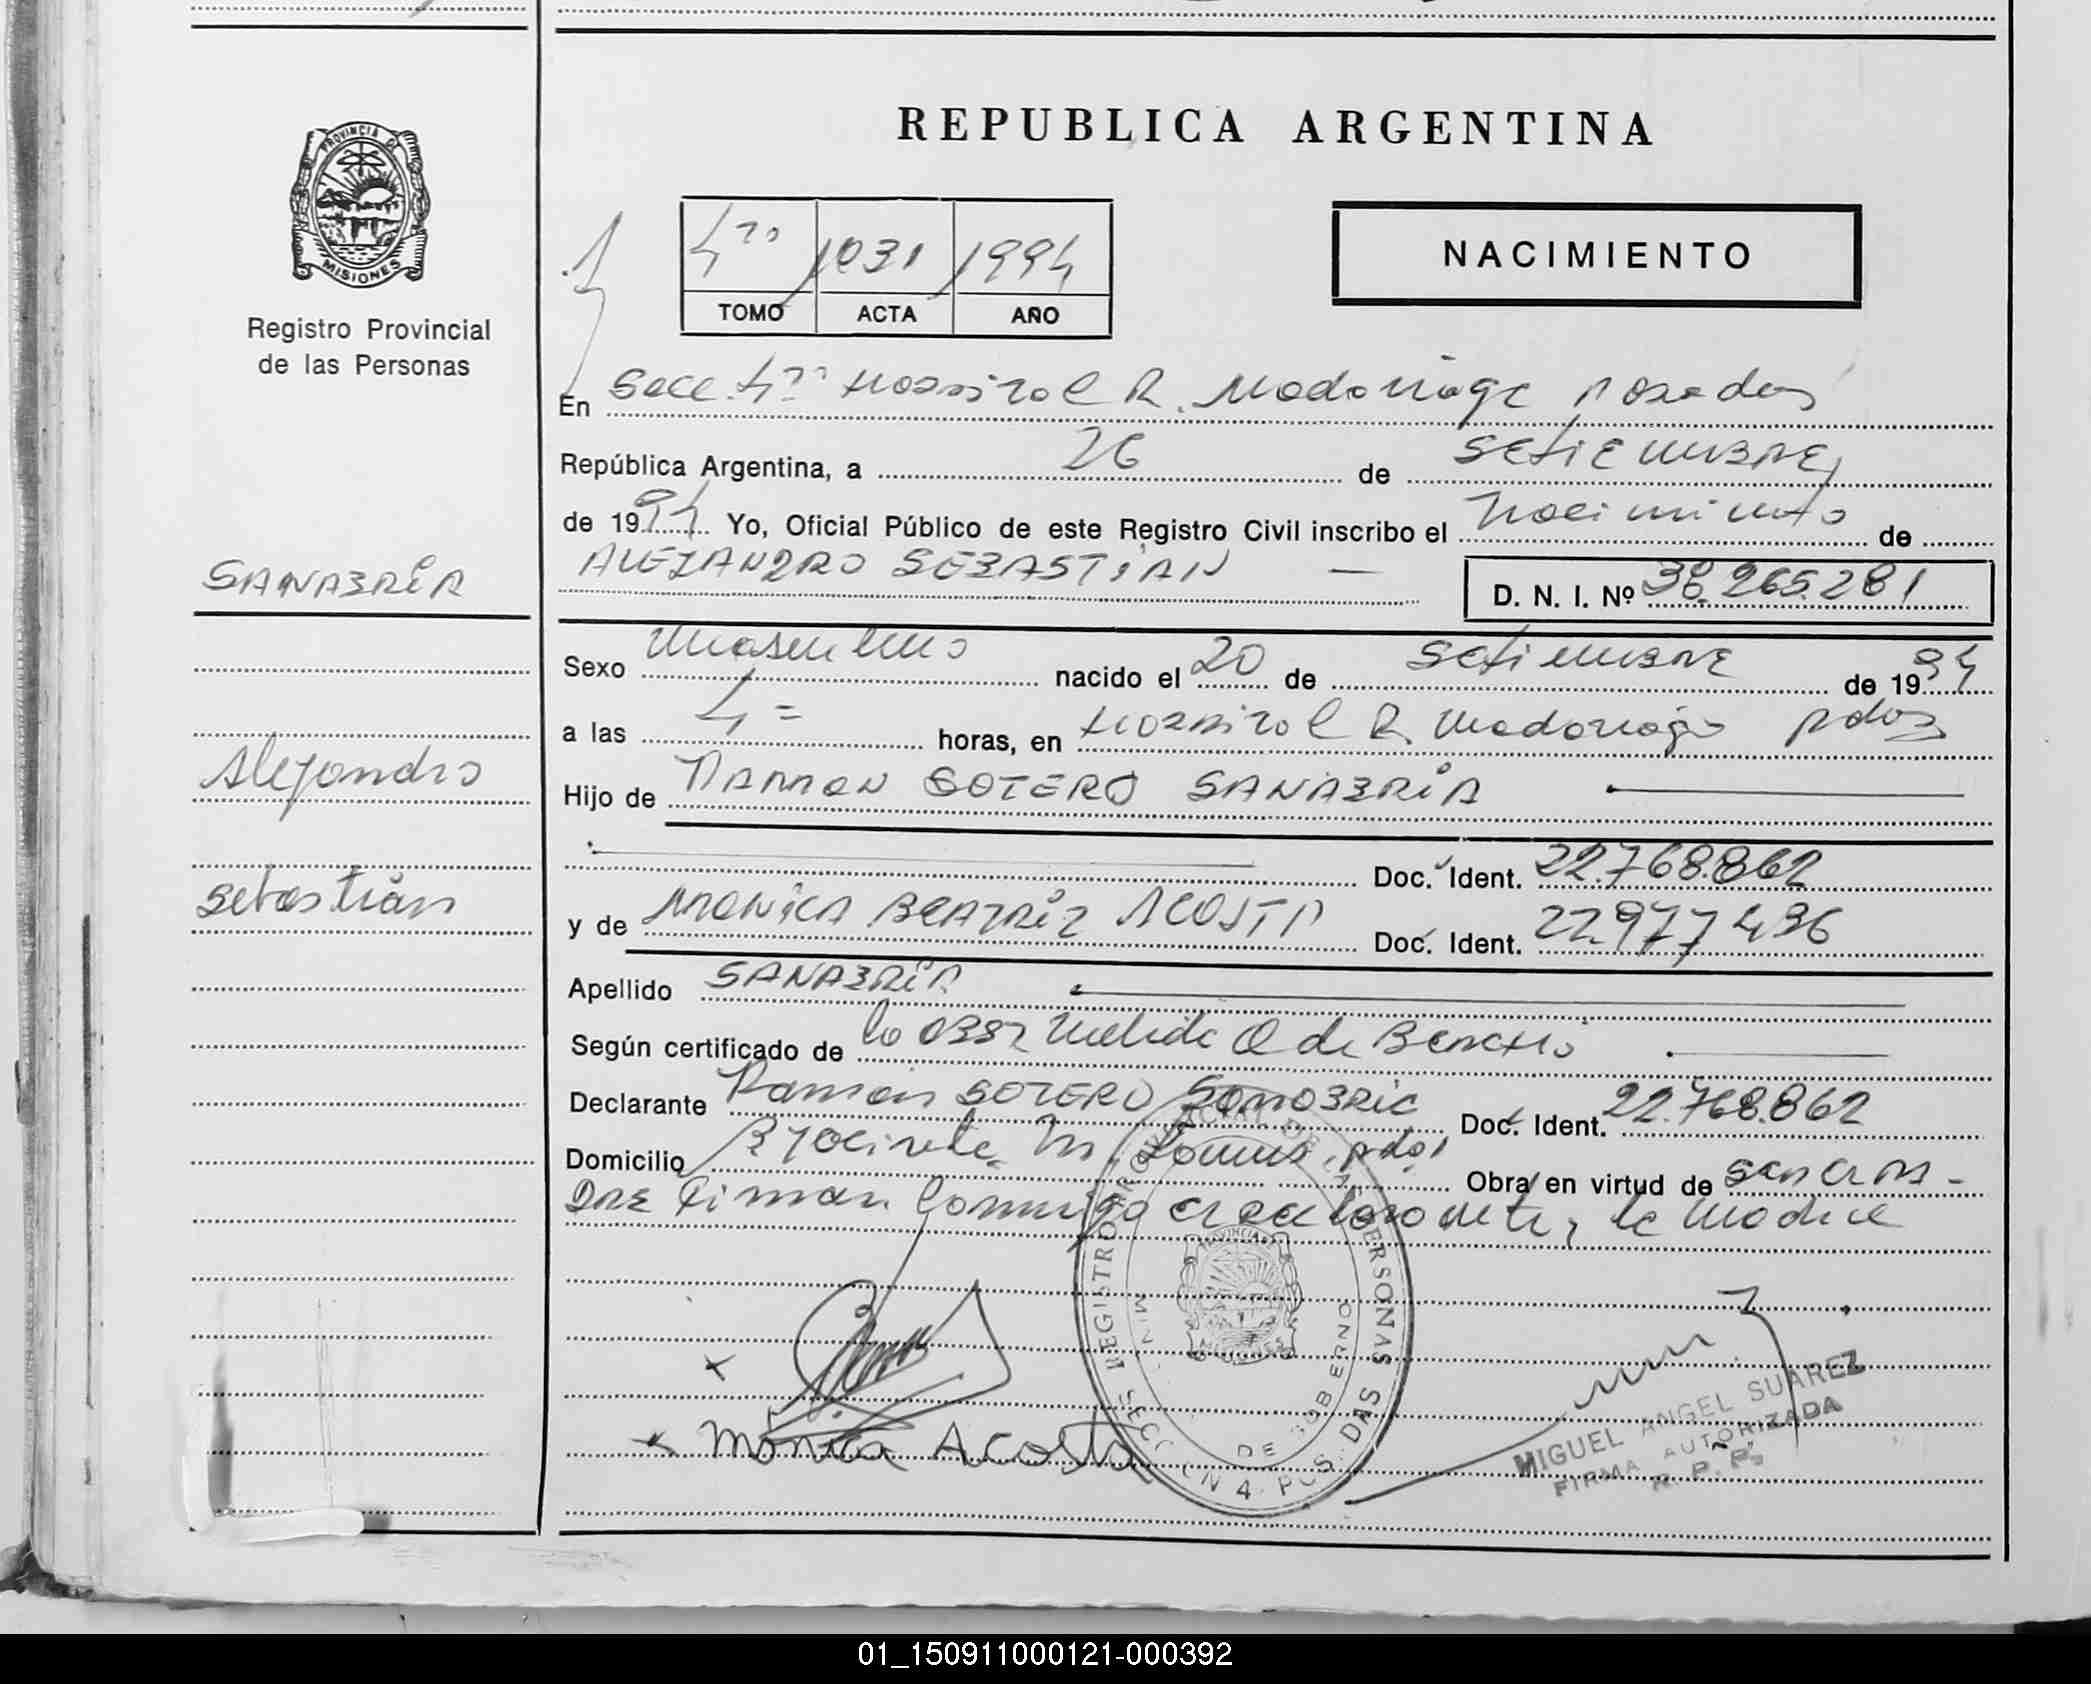 REPUBLICA ARGENTINA
PROVINCIA DE
MISIONES
Registro Provincial
de las Personas
4to 1031 1994
TOMO ACTA AÑO
NACIMIENTO
En Secc. 4ta Hospital R. Madariaga Posadas
República Argentina, a 26 de Setiembre
de 1994 Yo, Oficial Público de este Registro Civil inscribo el nacimiento de
ALEJANDRO SEBASTIAN — D. N. I. Nº 38.265.281
SANABRIA
Sexo masculino nacido el 20 de Setiembre de 1994
a las 4= horas, en Hospital R. Madariaga Pdas
Alejandro
Hijo de RAMON SOTERO SANABRIA
Doc. Ident. 22.768.862
Sebastián
y de MONICA BEATRIZ ACOSTA Doc. Ident. 22.977.436
Apellido SANABRIA
Según certificado de la Obst. Melida Q de
Declarante Ramon SOTERO Sanabria Doc. Ident. 22.768.862
Domicilio M. Pdas Obra en virtud de ser el pa-
dre Firman Conmigo el declarante y la madre
x
x Mónica Acosta
REGISTRO PROVINCIAL DE LAS PERSONAS
SECCION 4 POSADAS
MIN DE GOBIERNO
PROVINCIA
MISIONES
MIGUEL ANGEL SUAREZ
FIRMA AUTORIZADA
R. P. P.
01_150911000121-000392